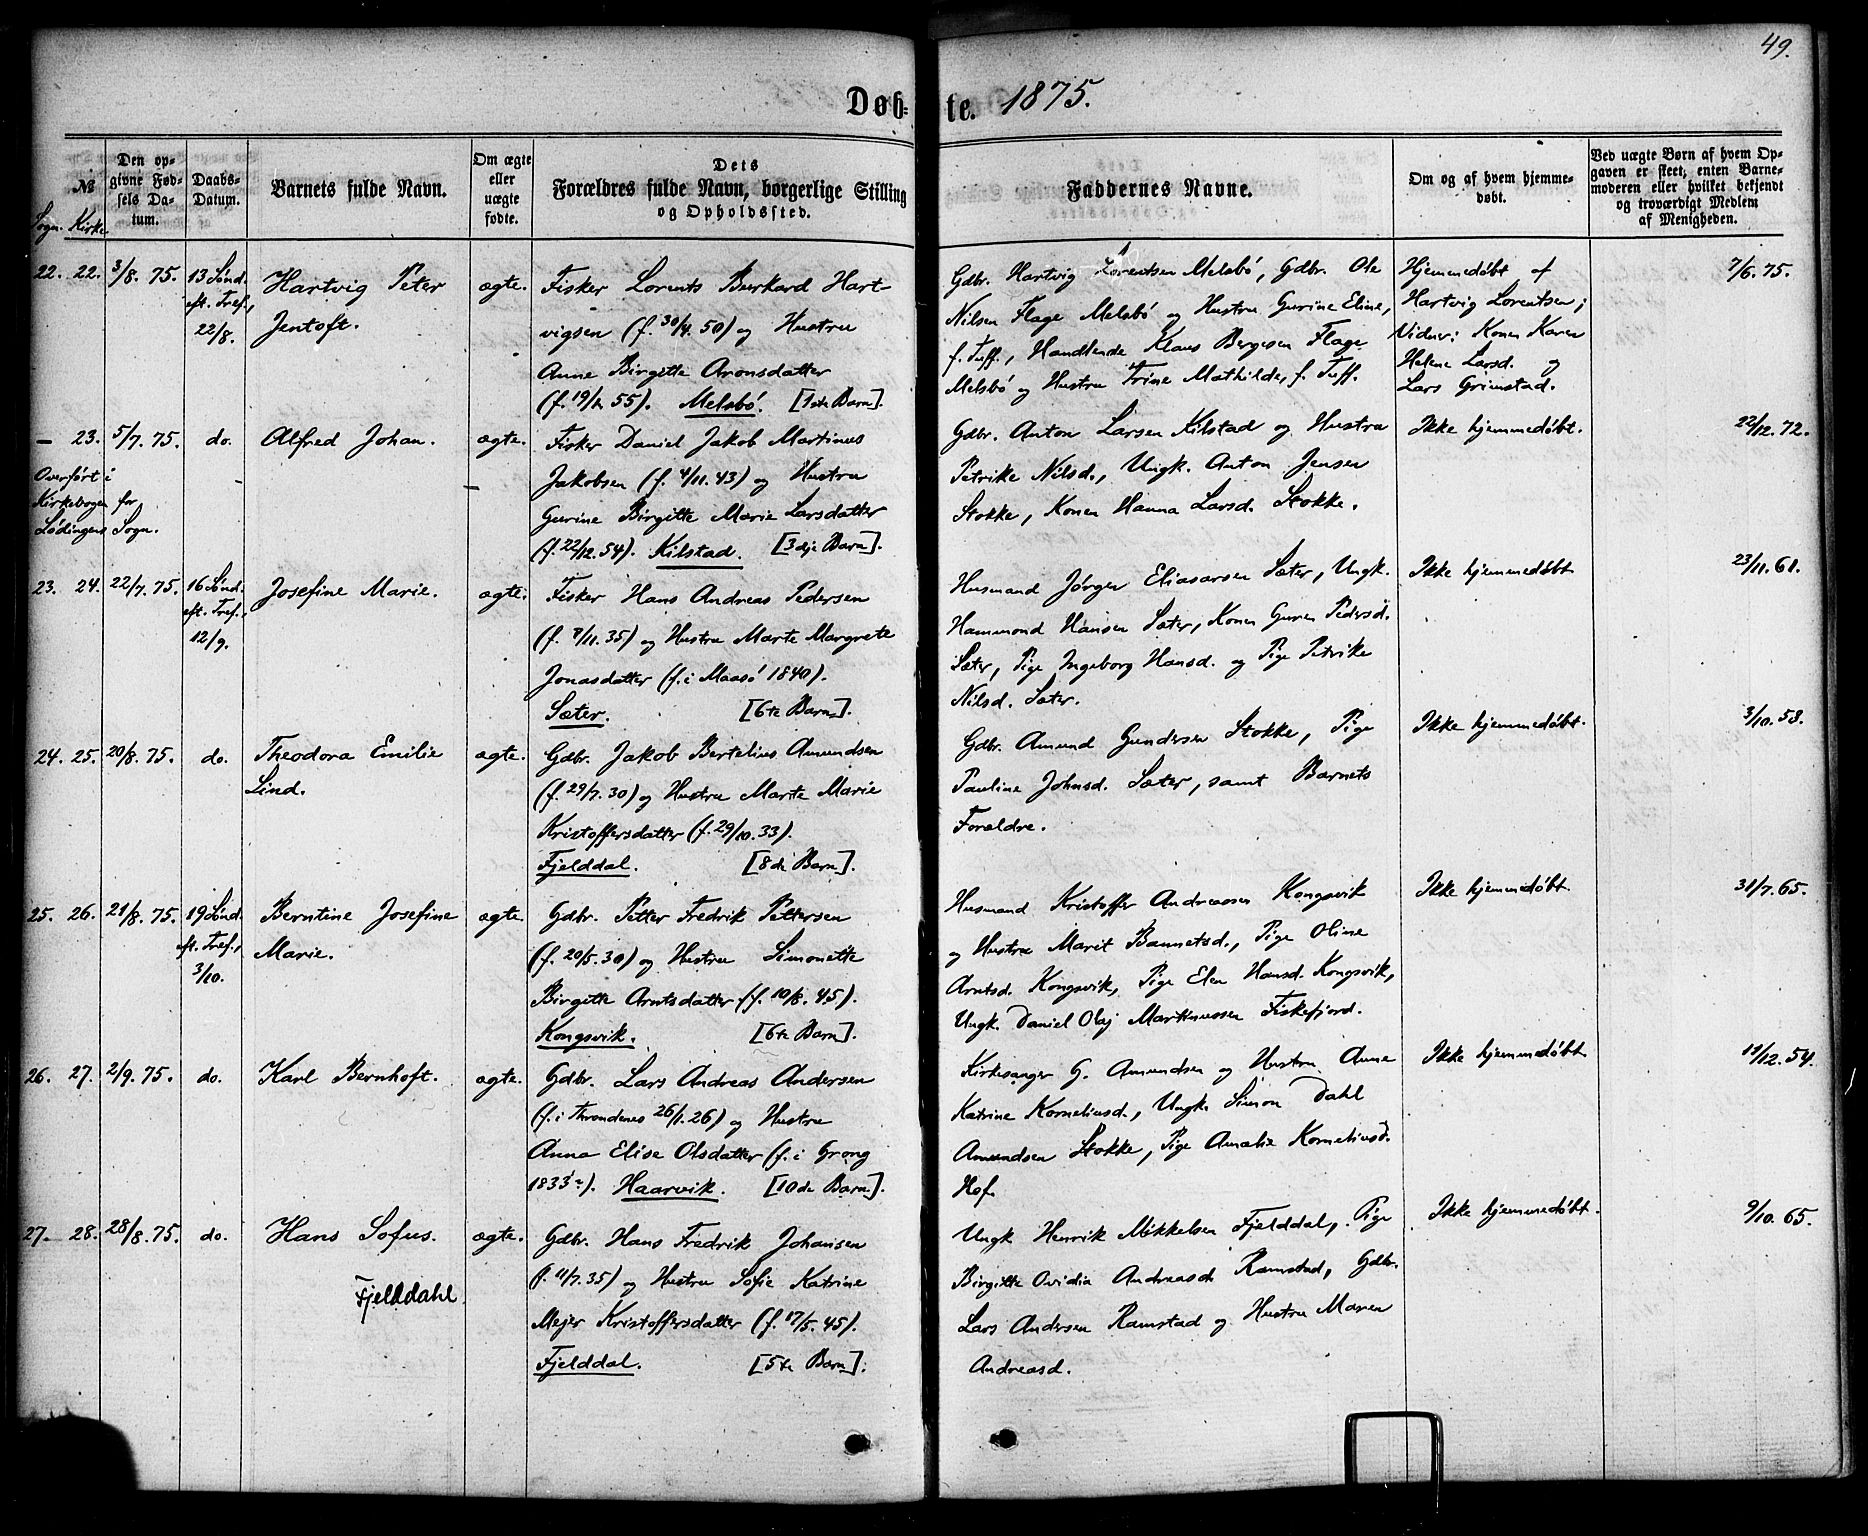 49.
Døb-te. 1875.
№
Sogn. Kirke.
Den op-
givne Fød-
sels Da-
tum.
Daabs-
Datum.
Barnets fulde Navn.
Om ægte
eller
uægte
fødte.
Dets
Forældres fulde Navn, borgerlige Stilling
og Opholdssted.
Faddernes Navne.
Om og af hvem hjemme-
døbt.
Ved uægte Børn af hvem Op-
gaven er skeet; enten Barne-
moderen eller hvilket bekjendt
og troværdigt Medlem
af Menigheden.
22. 22. 3/8. 75.
13 Sønd.
eft. Tref.,
22/8.
Hartvig Peter
Jentoft.
ægte.
Fisker Lorents Burkard Hart-
vigsen (f. 30/4. 50) og Hustru
Anne Birgitte Aronsdatter
(f. 19/ 55). Melsbö. [1ste Barn].
Gdbr. Hartvig Lorentsen Melsbö, Gdbr. Ole
Nilsen Flage Melsbö og Hustru Gurine Eline,
f. Tuff., Handlende Klaus Bergesen Flage
Melsbö og Hustru Trine Mathilde, f. Tuff.
Hjemmedøbt af
Hartvig Lorentsen;
Vidner: Konen Karen
Helene Larsd. og
Lars Grimstad.
7/6. 75.
— 23. 5/7. 75. do.
Overført i
Kirkebogen for
Lødingens Sogn.
Alfred Johan.
ægte.
Fisker Daniel Jakob Martinus
Jakobsen (f. 4/11. 43) og Hustru
Gurine Birgitte Marie Larsdatter
(f. 22/12. 54). Kilstad. [3dje Barn].
Gdbr. Anton Larsen Kilstad og Hustru
Petrike Nilsd., Ungk. Anton Jensen
Stokke, Konen Hanna Larsd. Stokke.
Ikke hjemmedøbt.
22/12. 72.
23. 24. 22/7. 75.
16 Sønd.
eft. Tref.,
12/9.
Josefine Marie.
ægte.
Fisker Hans Andreas Pedersen
(f. 7/11. 35) og Hustru Marte Margrete
Jonasdatter (f. i Maasö 1840).
Sæter. [6te Barn].
Husmand Jørgen Eliasarsen Sæter, Ungk.
Hammond Hansen Sæter, Konen Guren Pedersd.
Sæter, Pige Ingeborg Hansd. og Pige Petrike
Nilsd. Sæter.
Ikke hjemmedøbt
23/11. 61.
24. 25. 20/8. 75. do.
Theodora Emilie
Lind.
ægte.
Gdbr. Jakob Bertelius Amundsen
(f. 29/7. 30) og Hustru Marte Marie
Kristoffersdatter (f. 29/10. 33).
Fjelddal. [8de Barn].
Gdbr. Amund Gundersen Stokke, Pige
Pauline Johnsd. Sæter, samt Barnets
Forældre.
Ikke hjemmedøbt.
3/10. 58.
25. 26. 21/8. 75.
19 Sønd.
eft. Tref.,
3/10.
Berntine Josefine
Marie.
ægte.
Gdbr. Petter Fredrik Pettersen
(f. 20/5. 30) og Hustru Simonette
Birgitte Arntsdatter (f. 10/8. 45).
Kongsvik. [6te Barn].
Husmand Kristoffer Andreassen Kongsvik
og Hustru Marit Bannetsd., Pige Oline
Arntsd. Kongsvik, Pige Elen Hansd. Kongsvik,
Ungk. Daniel Olaj Martinussen Fiskefjord.
Ikke hjemmedøbt.
31/7. 65.
26. 27. 2/9. 75. do.
Karl Bernhoft.
ægte.
Gdbr. Lars Andreas Andersen
(f. i Throndenes 26/1. 26) og Hustru
Anna Elise Olsdatter (f. i Grong
1833). Haarvik. [10de Barn].
Kirkesanger G. Amundsen og Hustru Anne
Katrine Korneliusd., Ungk. Simon Dahl
Amundsen Stokke, Pige Amalie Korneliusd.
Hof.
Ikke hjemmedøbt.
11/12. 54.
27. 28. 28/8. 75. do.
Hans Sofus.
Fjelddahl.
ægte.
Gdbr. Hans Fredrik Johansen
(f. 11/7. 35) og Hustru Sofie Katrine
Mejer Kristoffersdatter (f. 17/5. 45).
Fjelddal. [5te Barn].
Ungk Henrik Mikkelsen Fjelddal, Pige
Birgitte Ovidia Andreasd. Ramstad, Gdbr.
Lars Andersen Ramstad og Hustru Maren
Andreasd.
Ikke hjemmedøbt.
9/10. 65.